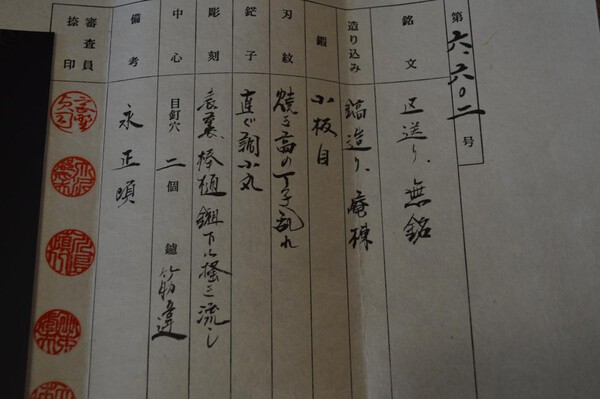 第六・六〇二号
銘文 区送り、無銘
造り込み 鎬造り、庵棟
鍛 小板目
刃紋 焼き高の丁子乱れ
鋩子 直ぐ調小丸
彫刻 表裏、棒樋鎺下に掻き流し
中心 目釘穴 二個 鑢 筋違
備考 永正頃
審査員捺印